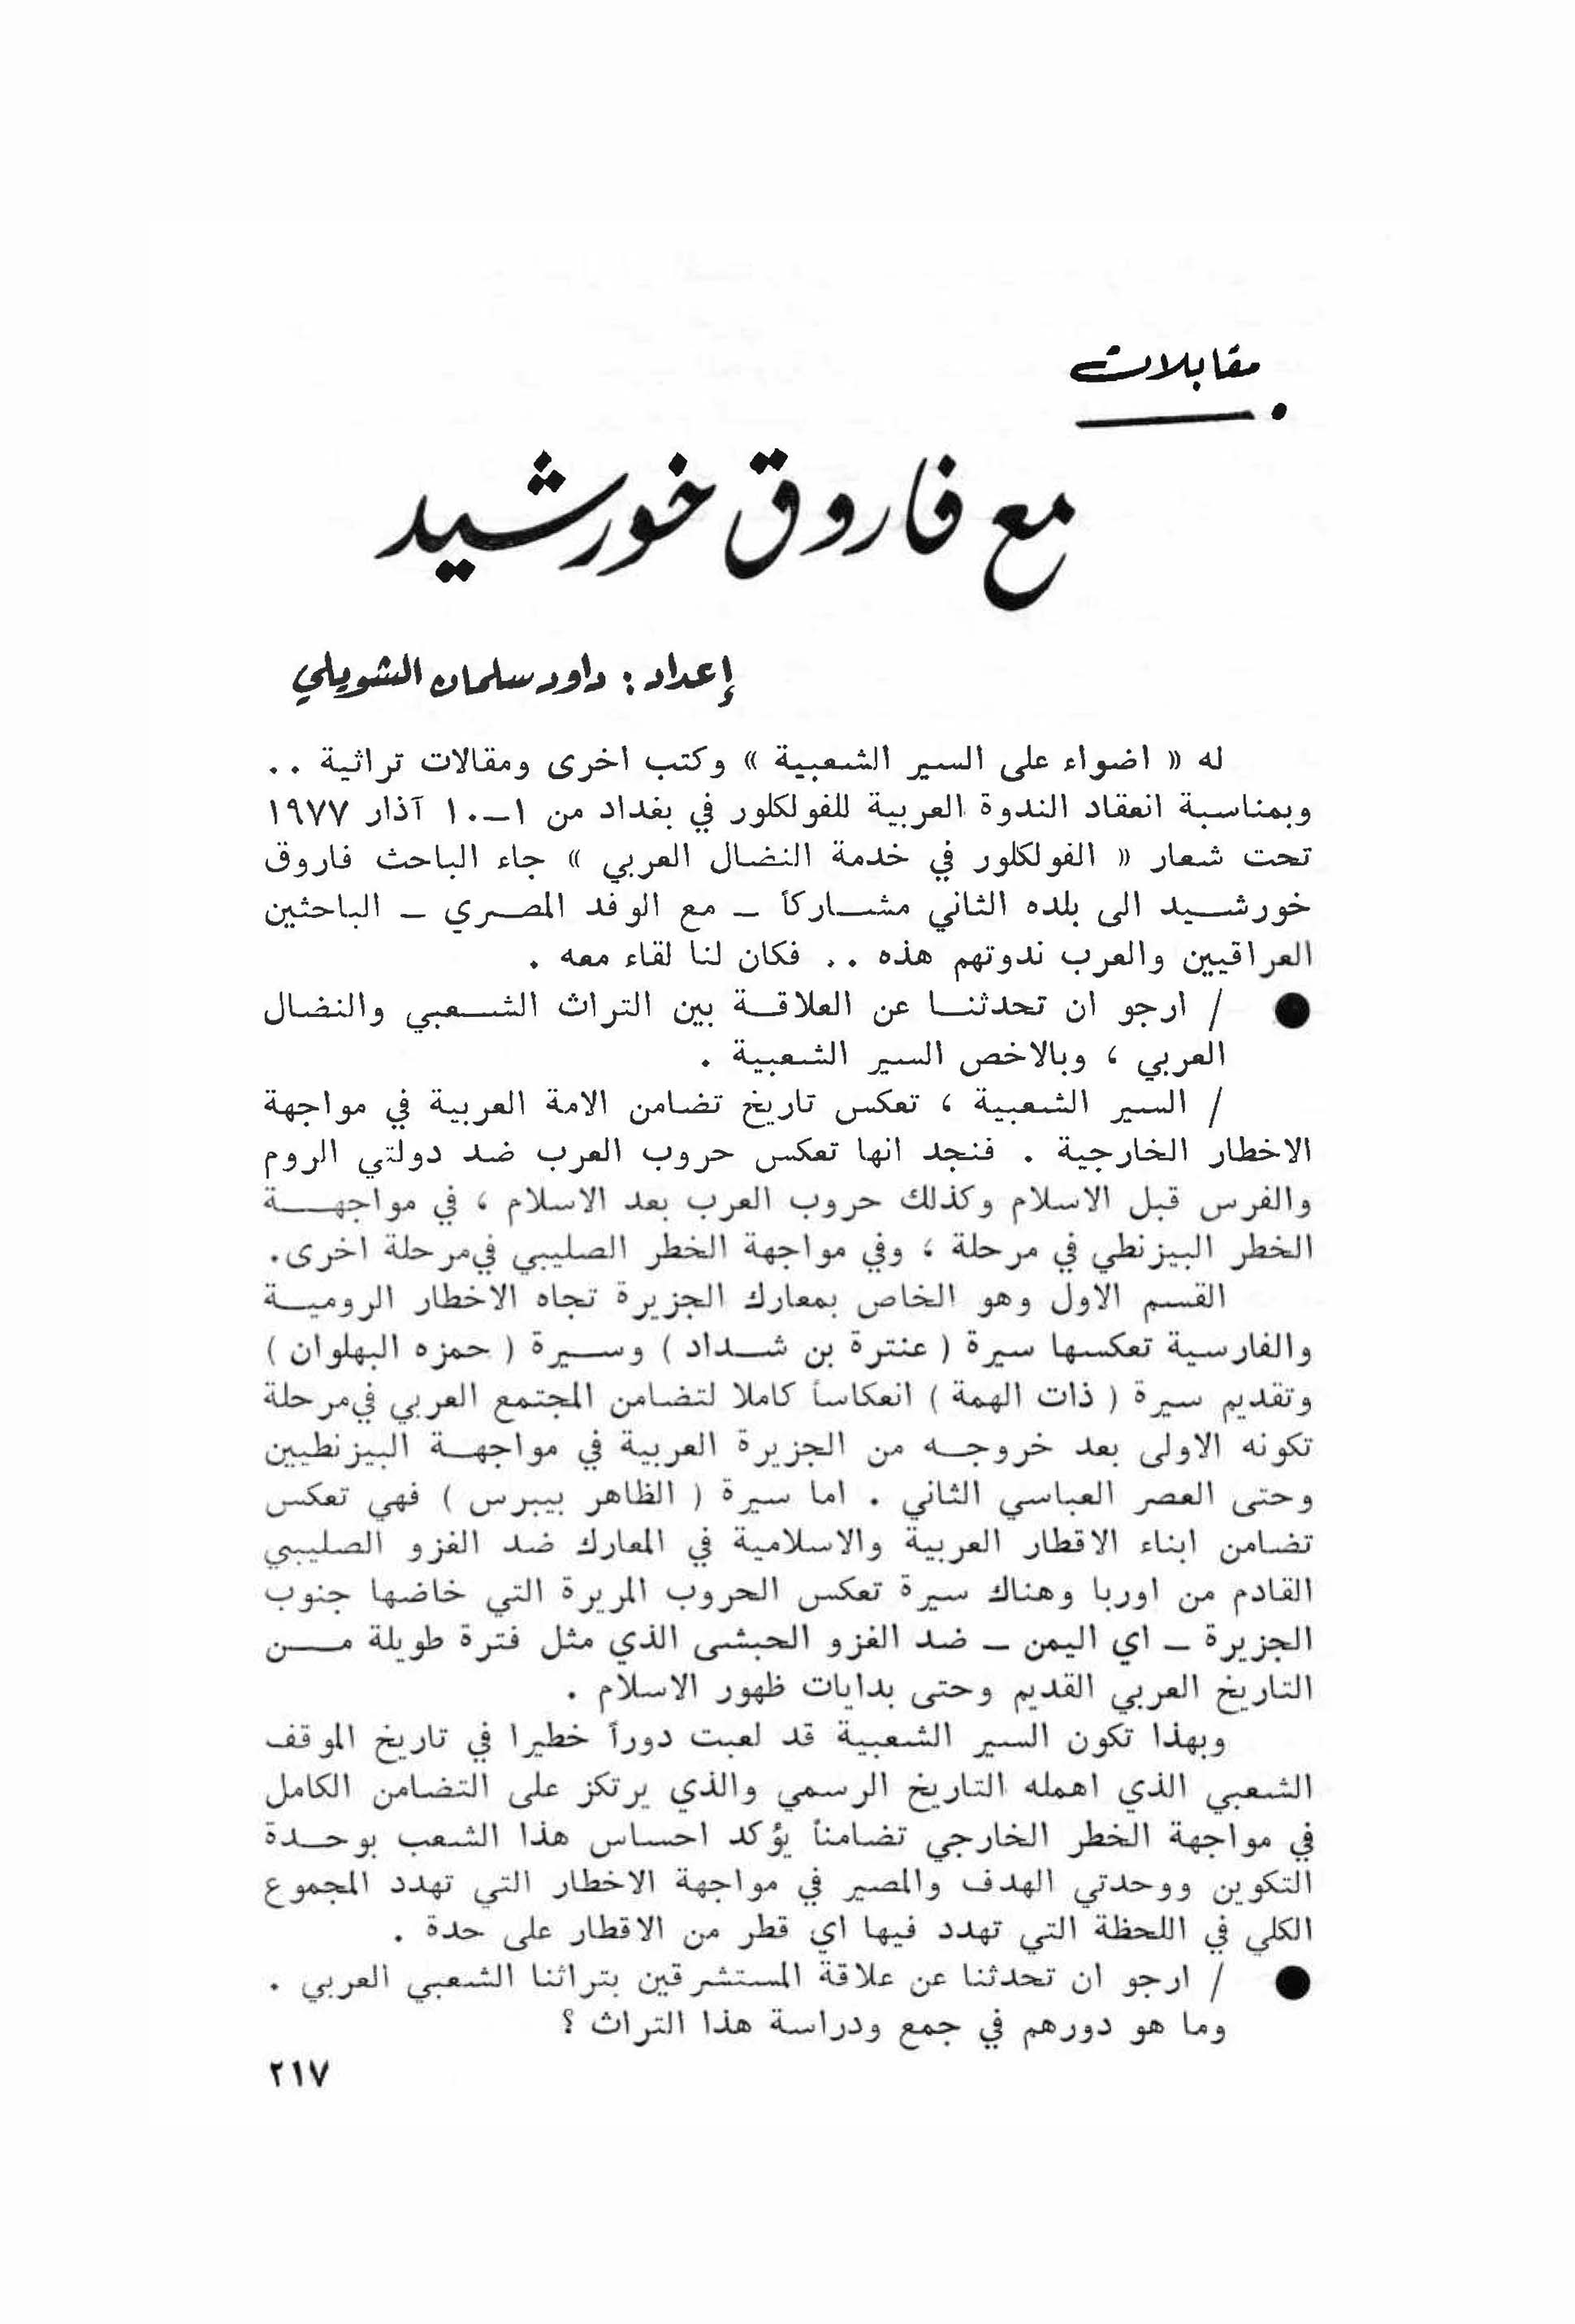 مقابلات
مع فاروق خورشيد
إعداد : داود سلمان الشويلي
له « اضواء على السير الشعبية » وكتب اخرى ومقالات تراثية . .
وبمناسبة انعقاد الندوة العربية للفولكلور في بغداد من ١–١٠ آذار ١٩٧٧
تحت شعار « الفولكلور في خدمة النضال العربي » جاء الباحث فاروق
خورشيد الى بلده الثاني مشاركاً – مع الوفد المصري – الباحثين
العراقيين والعرب ندوتهم هذه . . فكان لنا لقاء معه .
● / ارجو ان تحدثنا عن العلاقة بين التراث الشعبي والنضال
العربي ، وبالاخص السير الشعبية .
/ السير الشعبية ، تعكس تاريخ تضامن الامة العربية في مواجهة
الاخطار الخارجية . فنجد انها تعكس حروب العرب ضد دولتي الروم
والفرس قبل الاسلام وكذلك حروب العرب بعد الاسلام ، في مواجهة
الخطر البيزنطي في مرحلة ، وفي مواجهة الخطر الصليبي في مرحلة اخرى.
القسم الاول وهو الخاص بمعارك الجزيرة تجاه الاخطار الرومية
والفارسية تعكسها سيرة ( عنترة بن شداد ) وسيرة ( حمزه البهلوان )
وتقديم سيرة ( ذات الهمة ) انعكاساً كاملا لتضامن المجتمع العربي في مرحلة
تكونه الاولى بعد خروجه من الجزيرة العربية في مواجهة البيزنطيين
وحتى العصر العباسي الثاني . اما سيرة ( الظاهر بيبرس ) فهي تعكس
تضامن ابناء الاقطار العربية والاسلامية في المعارك ضد الغزو الصليبي
القادم من اوربا وهناك سيرة تعكس الحروب المريرة التي خاضها جنوب
الجزيرة – اي اليمن – ضد الغزو الحبشى الذي مثل فترة طويلة من
التاريخ العربي القديم وحتى بدايات ظهور الاسلام .
وبهذا تكون السير الشعبية قد لعبت دوراً خطيرا في تاريخ الموقف
الشعبي الذي اهمله التاريخ الرسمي والذي يرتكز على التضامن الكامل
في مواجهة الخطر الخارجي تضامناً يؤكد احساس هذا الشعب بوحدة
التكوين ووحدتي الهدف والمصير في مواجهة الاخطار التي تهدد المجموع
الكلي في اللحظة التي تهدد فيها اي قطر من الاقطار على حدة .
● / ارجو ان تحدثنا عن علاقة المستشرقين بتراثنا الشعبي العربي .
وما هو دورهم في جمع ودراسة هذا التراث ؟
٢١٧